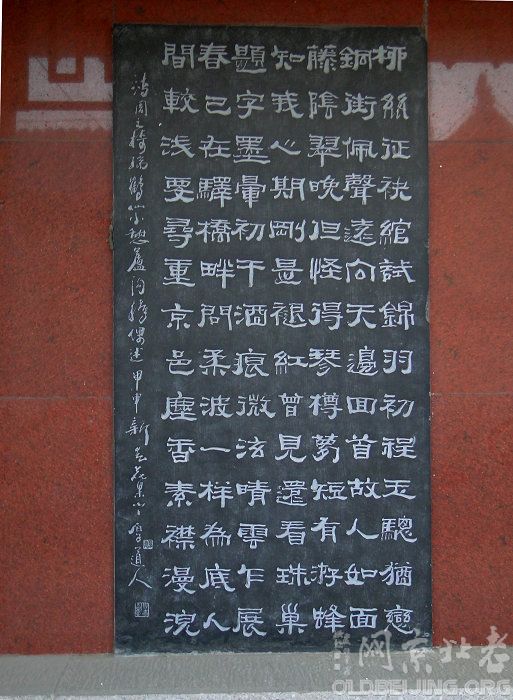 柳絲征袂綰試錦羽初程玉驄猶戀
銅街佩聲遠向天邊回首故人如面
藤陰翠晚但怪得琴樽夢短有游蜂
知我心期剛是褪紅曾見還看珠巢
題字墨暈初干酒痕微泫晴雲乍展
春已在驛橋畔問柔波一樣為底人
間較淺要尋重京邑塵香素襟漫浣
清周之琦瑞鶴仙憩蘆溝橋偶述 甲申新 道人
网京北老
OLDBEIJING.ORG